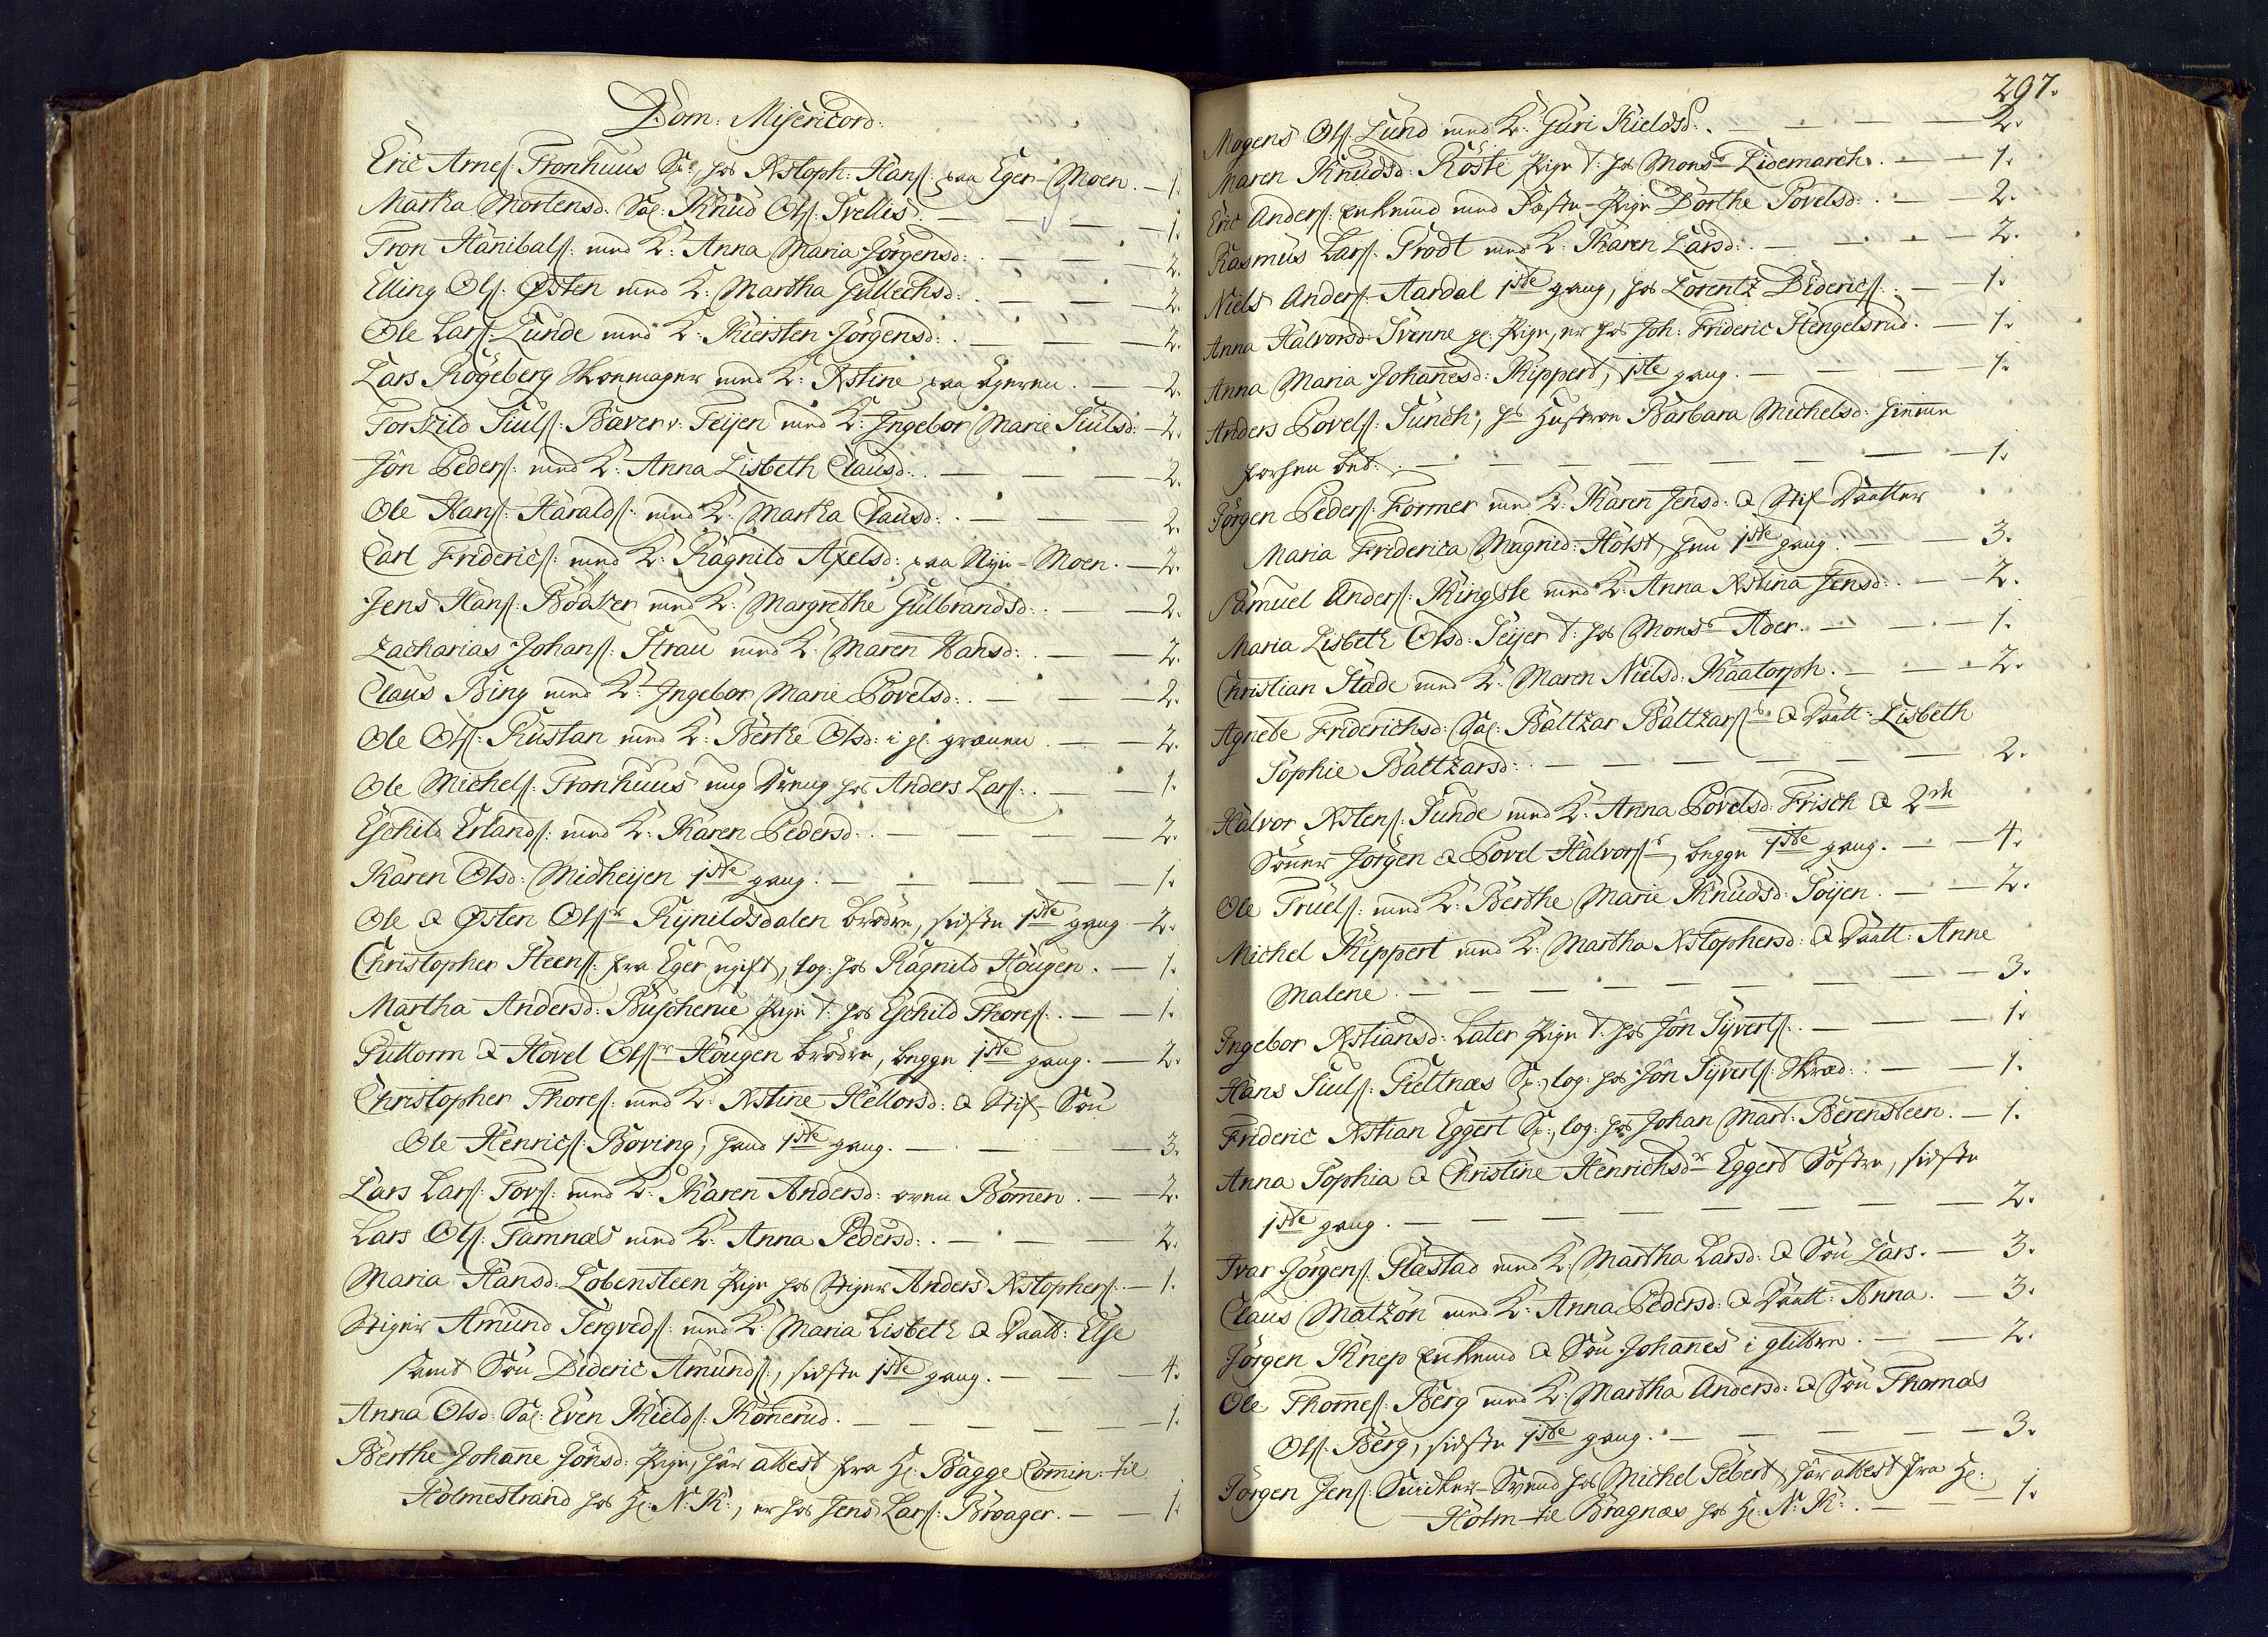 Dom: Misericord:
Eric Arnes: Tronhuus Sp: hos Xstoph: Hans: paa Eger-Moen. — 1.
Martha Mortensd. Sal: Knud Ols: Trellis. — 1.
Tron Hanibals: med K: Anna Maria Jörgensd: — 2.
Elling Ols: Østen med K: Martha Gullechsd: — 2.
Ole Lars: Lunde med K: Kiersten Jörgensd: — 2.
Lars Rögeberg Skoemager med K: Xstine paa Ageren. — 2.
Torkild Siuls: Bæver v: Teijen med K: Ingebor Marie Siulsd: — 2.
Jön Peders: med K: Anna Lisbeth Clausd: — 2.
Ole Hans: Haralds: med K: Martha Clausd: — 2.
Carl Frideries: med K: Ragnild Axelsd: paa Nye-Moen. — 2.
Jens Hans: Bödker med K: Margrethe Gulbrandsd: — 2.
Zacharias Johans: Strau med K: Maren Hansd: — 2.
Claus Bing med K: Ingebor Marie Povelsd: — 2.
Ole Ols: Rustan med K: Berthe Olsd: i gl: gruven. — 2.
Ole Michels: Tronhuus ung Dreng hos Anders Lars: — 1.
Eschild Erlands: med K: Karen Pedersd: — 2.
Karen Olsd: Midheijen 1ste gang. — 1.
Ole & Østen Olsr Rynildsdalen brödre, sidste 1ste gang — 2.
Christopher Steens: fra Eger ugift, log: hos Ragnild Hougen. — 1.
Martha Andersd: Buscherue Pige t: hos Eschild Thores: — 1.
Guttorm & Hovel Olsr Hougen brödre, begge 1ste gang. — 2.
Christopher Thores: med K: Xstine Hellorsd: & Stif-Sön
Ole Henrics: Boving, hand 1ste gang. — 3.
Lars Lars: Tors: med K: Karen Andersd: oven Bommen. — 2.
Lars Ols: Tamnes med K: Anna Pedersd: — 2.
Maria Hansd: Lobensteen Pige hos Stiger Anders Xstophers: — 1.
Stiger Amund Tergveds: med K: Maria Lisbeth & Daatt: Else
samt Sön Dideric Amunds:, sidste 1ste gang. — 4.
Anna Olsd: Sal: Even Kields: Konerud. — 1.
Berthe Johane Jönsd: Pige, har attest fra Hr: Bagge Commin: til
Holmestrand hos Hr: N: K:, er hos Jens Lars: Braager. — 1.
297.
Mogens Ols: Lund med K: Guri Kieldsd: — 2.
Maren Knudsd: Röste Pige t: hos Monsr Lidemarch. — 1.
Eric Anders: Enkemd med Fæste-Pige Dorthe Povelsd: — 2.
Rasmus Lars: Brodt med K: Karen Larsd: — 2.
Niels Anders: Aardal 1ste gang, hos Lorentz Diderics: — 1.
Anna Halvorsd: Svenne gl: Pige, er hos Joh: Frideric Stengelsrud. — 1.
Anna Maria Johanesd: Kippert, 1ste gang. — 1.
Anders Povels: Sunch, hs Hustroe Barbara Michelsd: hiemme
forhen bet: — 1.
Jörgen Peders: Former med K: Karen Jensd: & Stif-Daatter
Maria Friderica Magned: Holst, hun 1ste gang. — 3.
Samuel Anders: Ringste med K: Anna Xstina Jensd: — 2.
Maria Lisbeth Olsd: Seijer t: hos Monsr Ader. — 1.
Christian Stade med K: Maren Nielsd: Kaatorph. — 2.
Agnete Friderichsd: Sal: Baltzar Baltzars: & Daatt: Lisbeth
Sophie Baltzarsd: — 2.
Halvor Xstens: Sunde med K: Anna Povelsd: Frisch & 2de
Sönner Jörgen & Povel Halvorsr, begge 1ste gang. — 4.
Ole Truels: med K: Berthe Marie Knudsd: Söijen. — 2.
Michel Kippert med K: Martha Xstophersd: & Daatt: Anne
Malene. — 3.
Ingebor Xstiansd: Later Pige t: hos Jön Syverts: — 1.
Hans Siuls: Gieltnæs Sp:, log: hos Jön Syverts: Skræd: — 1.
Frideric Xstian Eggert Sp:, log: hos Johan Mart: Berensteen. — 1.
Anna Sophia & Christine Henrichsdr Eggert Söstre, sidste
1ste gang. — 2.
Ivar Jörgens: Plastad med K: Martha Larsd: & Sön Lars. — 3.
Claus Matzon med K: Anna Pedersd: & Daatt: Anna. — 3.
Jörgen Knep Enkemd & Sön Johanes i glittre. — 2.
Ole Thomes: Berg med K: Martha Andersd: & Sön Thomas
Ols: Berg, sidste 1ste gang. — 3.
Jörgen Jens: Snidker-Svend hos Michel Gebert, har attest fra Hr:
Holm til Bragnæs hos Hr: N: K: — 1.